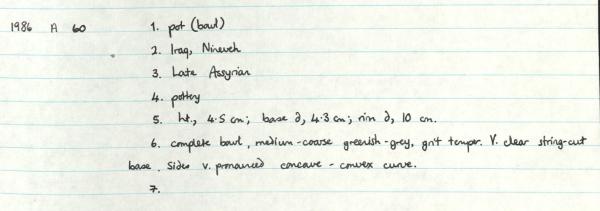 1986 A 60 1. pot (bowl)
2. Iraq, Nineveh
3. Late Assyrian
4. pottery
5. ht., 4.5 cm; base ∂, 4.3 cm; rim ∂, 10 cm.
6. complete bowl, medium-coarse greenish-grey, grit temper. V. clear string-cut
base. Sides v. pronounced concave - convex curve.
7.